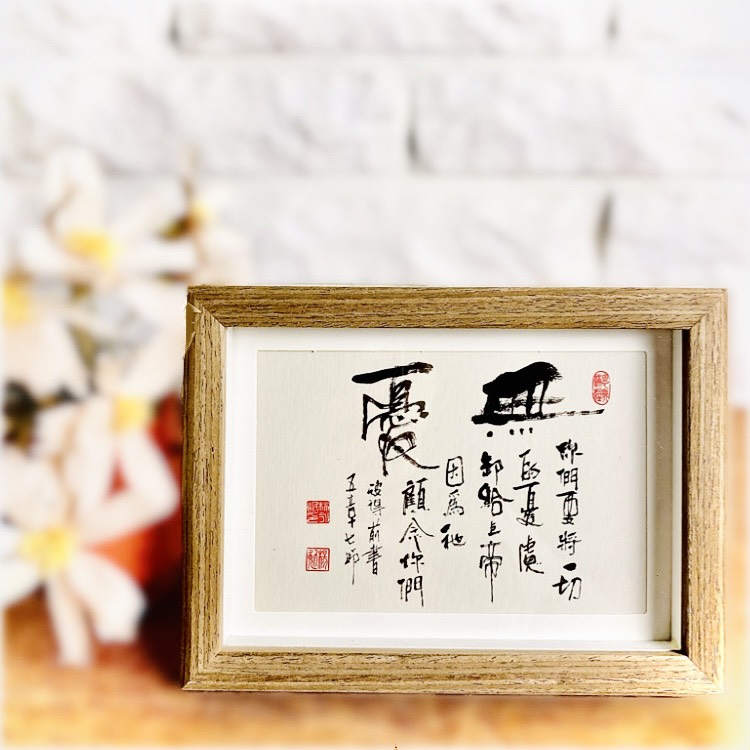 無憂
你們要將一切
的憂慮
卸給上帝
因為祂
顧念你們
彼得前書
五章七節